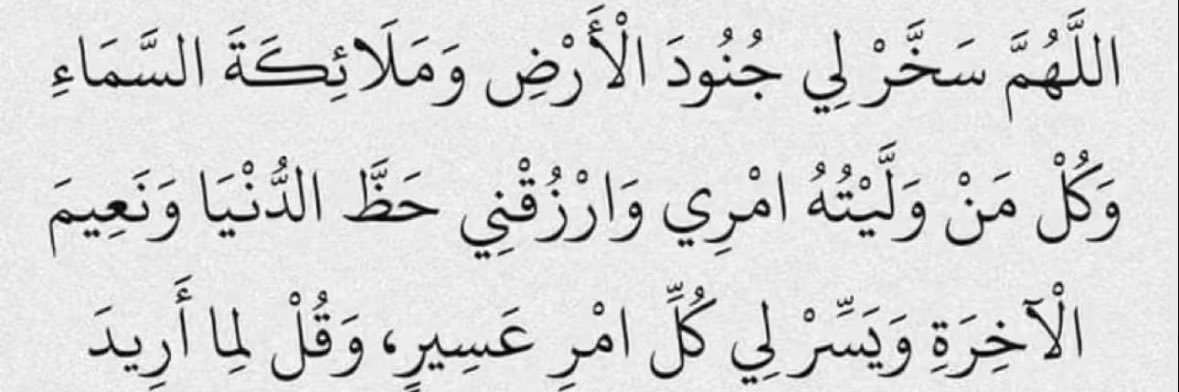 اللَّهُمَّ سَخَّرْ لِي جُنُودَ الْأَرْضِ وَمَلَائِكَةَ السَّمَاءِ
وَكُلْ مَنْ وَلَّيْتُهُ امْرِي وَارْزُقْنِي حَظَّ الدُّنْيَا وَنَعِيمَ
الْآخِرَةِ وَيَسِّرْ لِي كُلِّ امْرِ عَسِيرٍ، وَقُلْ لِما أَرِيدَ